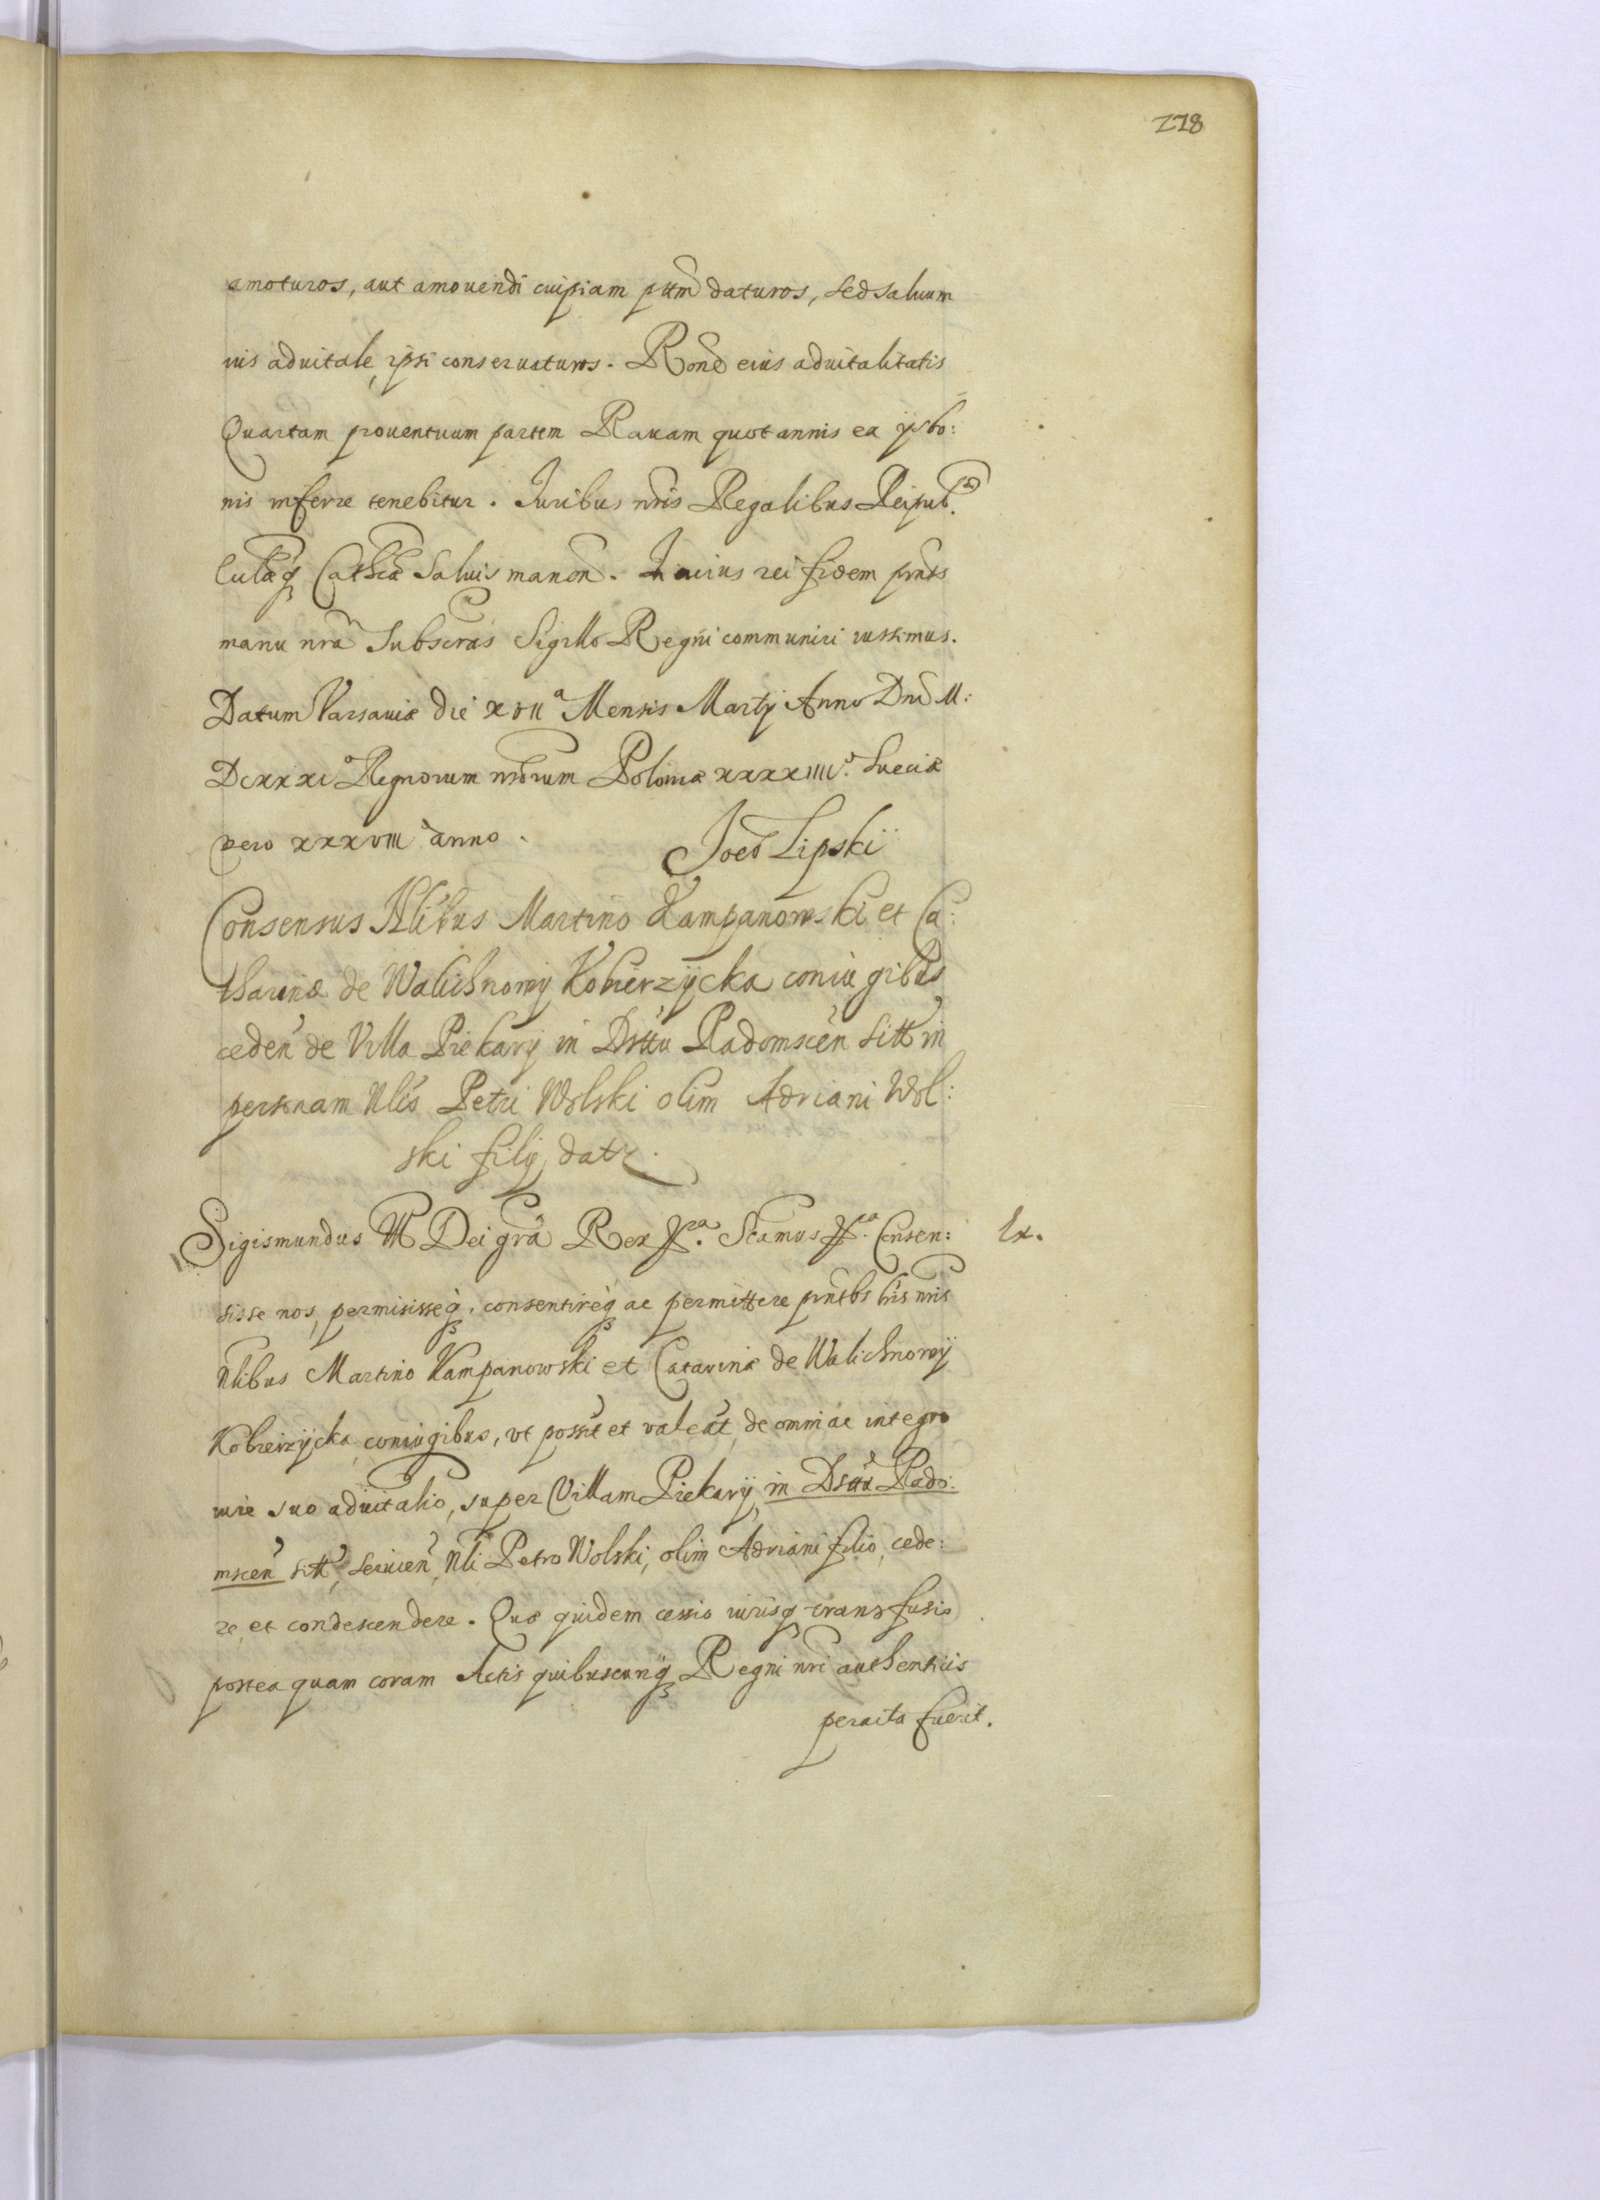 218
amoturos, aut amouendi cuipiam ptтm daturos, sed saluum
ius aduitale ipsi conseruaturos. Rone eius aduitalitatis
Quartam prouentuum partem Rauam quotannis ea ijs bo:
nis inferre tenebitur. Iuribus nris Regalibus Reipub.
Ecclaeq Cathcae Saluis manen. In cuius rei fidem pntes
manu nra Subscras Sigillo Regni communiri iussimus.
Datum Varsauiae die XVIIa Mensis Martij Anno Dni M:
DCXXXIo Regnorum nrorum Poloniae XXXXIIIIo. Sueciae
vero XXXVIIIo anno.
Joes Lipskij
Consensus Nlibus Martino Kampanowski et Ca:
tharinae de Walichnowy Kobierzycka coniugibus
ceden de Villa Piekary in Dsttu Radomscen sitt in
personam Nlis Petri Wolski olim Adriani Wol:
ski filij datr.
Sigismundus III Dei gra Rex &ra. Scamus &ra. Consen:
Ex.
sisse nos, permisisseq, consentireq ac permittere pntbs lris nris
Nlibus Martino Kampanowski et Catarinae de Walichnowÿ
Kobierzÿcka coniugibus, vt possit et valeat de omni ac integro
iure suo aduitalio, super Villam Piekarÿ, in Dsttu Rado:
mscen sitt, seruien, Nli Petro Wolski, olim Adriani filio, cede:
re et condescendere. Quae quidem cessio iurisq transfusio
postea quam coram Actis quibuscunq Regni nri authenticis
peracta fuerit.